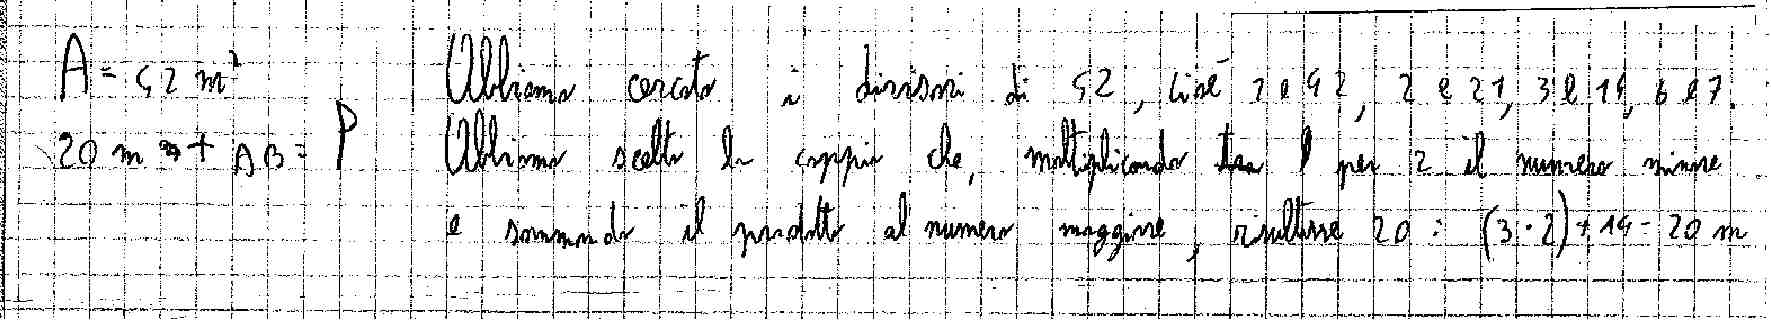 A = 42 m² Abbiamo cercato i divisori di 42, cioè 1 e 42, 2 e 21, 3 e 14, 6 e 7.
20 m + AB = P Abbiamo scelto la coppia che, moltiplicando per 2 il numero minore
e sommando il prodotto al numero maggiore, risultasse 20 : (3·2) + 14 = 20 m